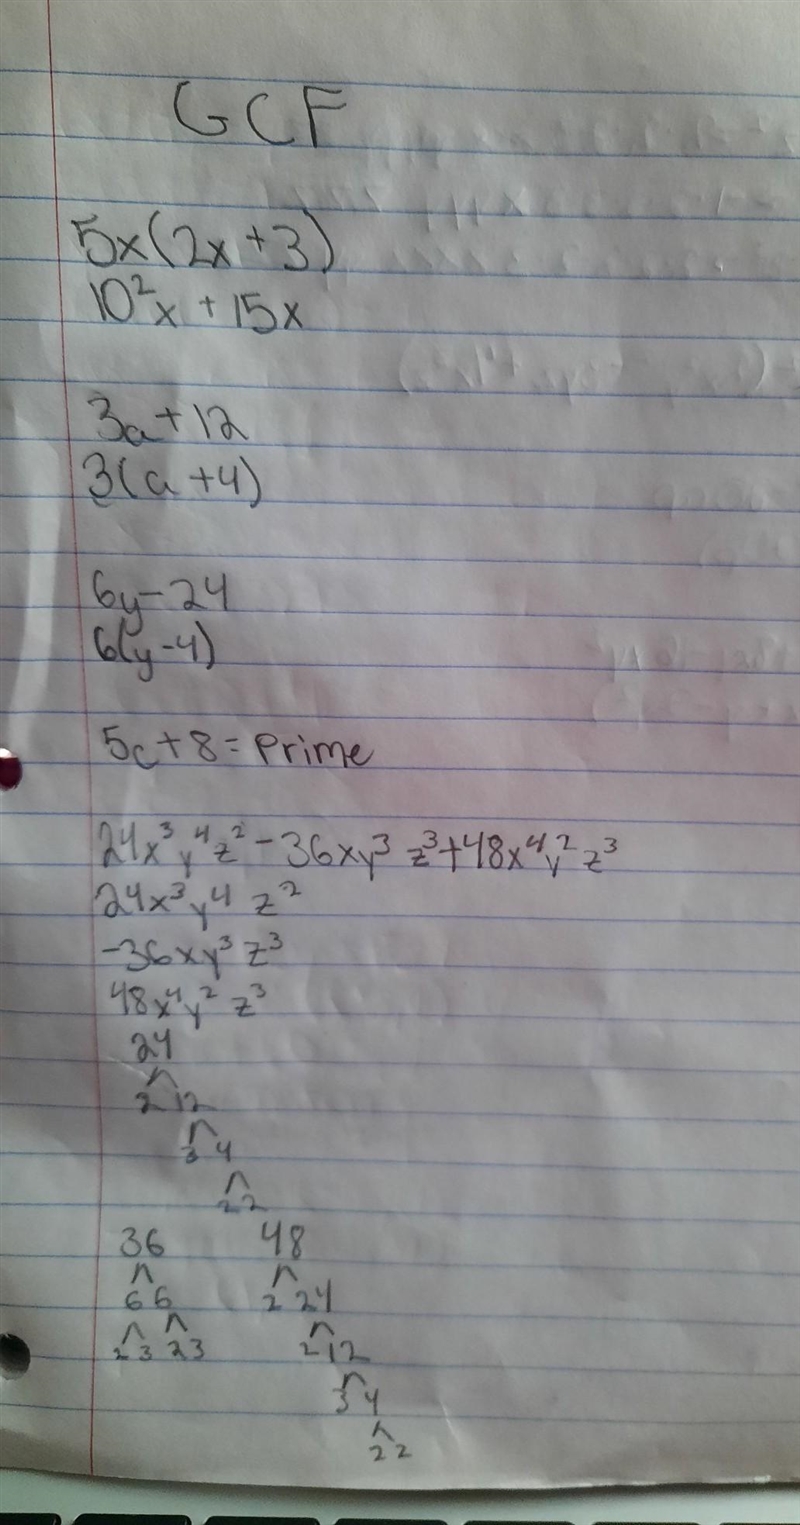 GCF
5x(2x+3)
10²x + 15x
3a+12
3(a+4)
6y-24
6(y-4)
5c+8=Prime
24x³y⁴z²-36xy³z³+48x⁴y²z³
24x³y⁴z²
-36xy³z³
48x⁴y²z³
24
2 12
3 4
2 2
36 48
6 6 2 24
2 3 2 3 2 12
3 4
2 2